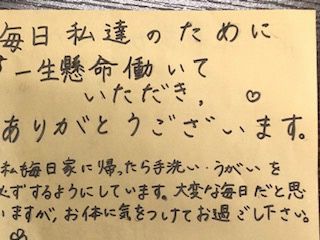 毎日私達のために
一生懸命働いて
いただき,
ありがとうございます。
私も毎日家に帰ったら手洗い・うがいを
必ずするようにしています。大変な毎日だと思
いますが、お体に気をつけてお過ご下さい。